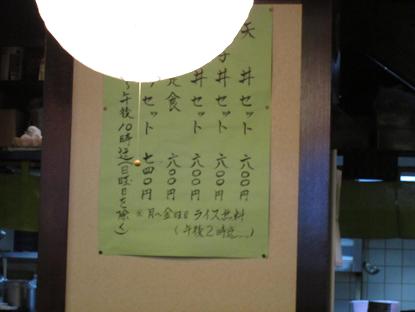 丼セット 六〇〇円
子丼セット 六〇〇円
丼セット 六〇〇円
定食 六〇〇円
セット 七四〇円
午後10時迄(日曜日を除く)
※月〜金曜日ライス無料
(午後2時迄)